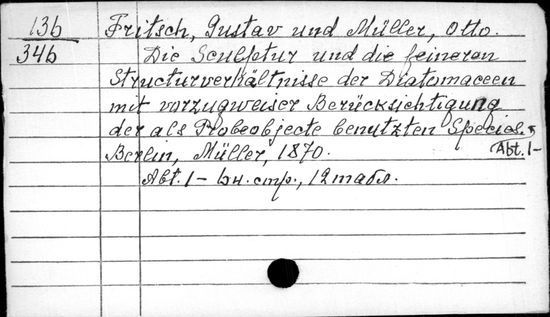 136 Fritsch, Gustav und Müller, Otto.
346 Die Sculptur und die feineren
Structurverhältnisse der Diatomaceen
mit vorzugweiser Berücksichtigung
der als Probeobjecte benutzten Species.
Berlin, Müller, 1870. Abt. 1-
Abt. 1- 64. стр., 12 табл.